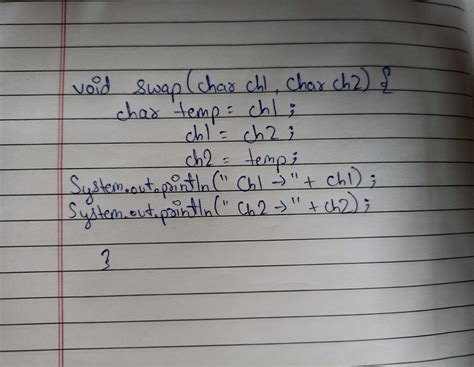 void swap(char ch1, char ch2) {
char temp = ch1;
ch1 = ch2;
ch2 = temp;
System.out.println("Ch1 →" + ch1);
System.out.println("Ch2 →" + ch2);
}